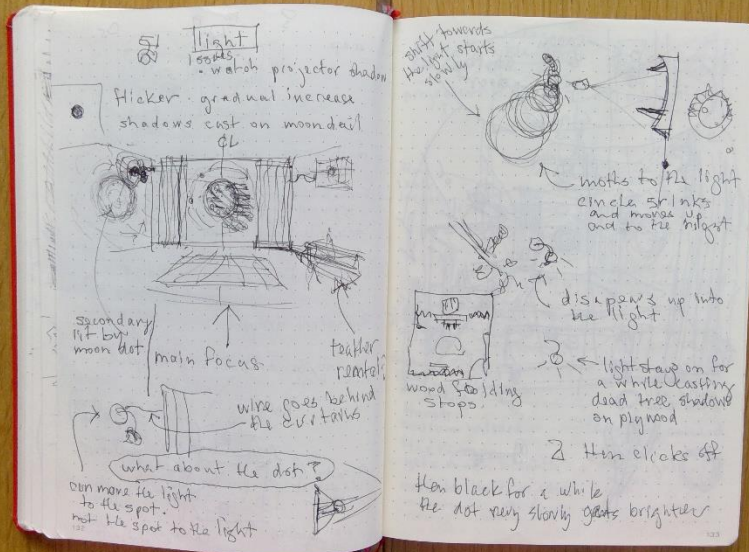 light
issues
• watch projector shadow
flicker - gradual increase
shadows cast on moondail
CL
secondary
lit by
moon dot
main focus
wire goes behind
the curtains
what about the dot?
can move the light
to the spot.
not the spot to the light
shift towards
the light starts
slowly
moths to the light
circle srinks
and moves up
and to the
disapears up into
the light
light stays on for
a while casting
dead tree shadows
on plywood
wood folding
stops
then clicks off
then black for a while
the dot very slowly gets brighter
133